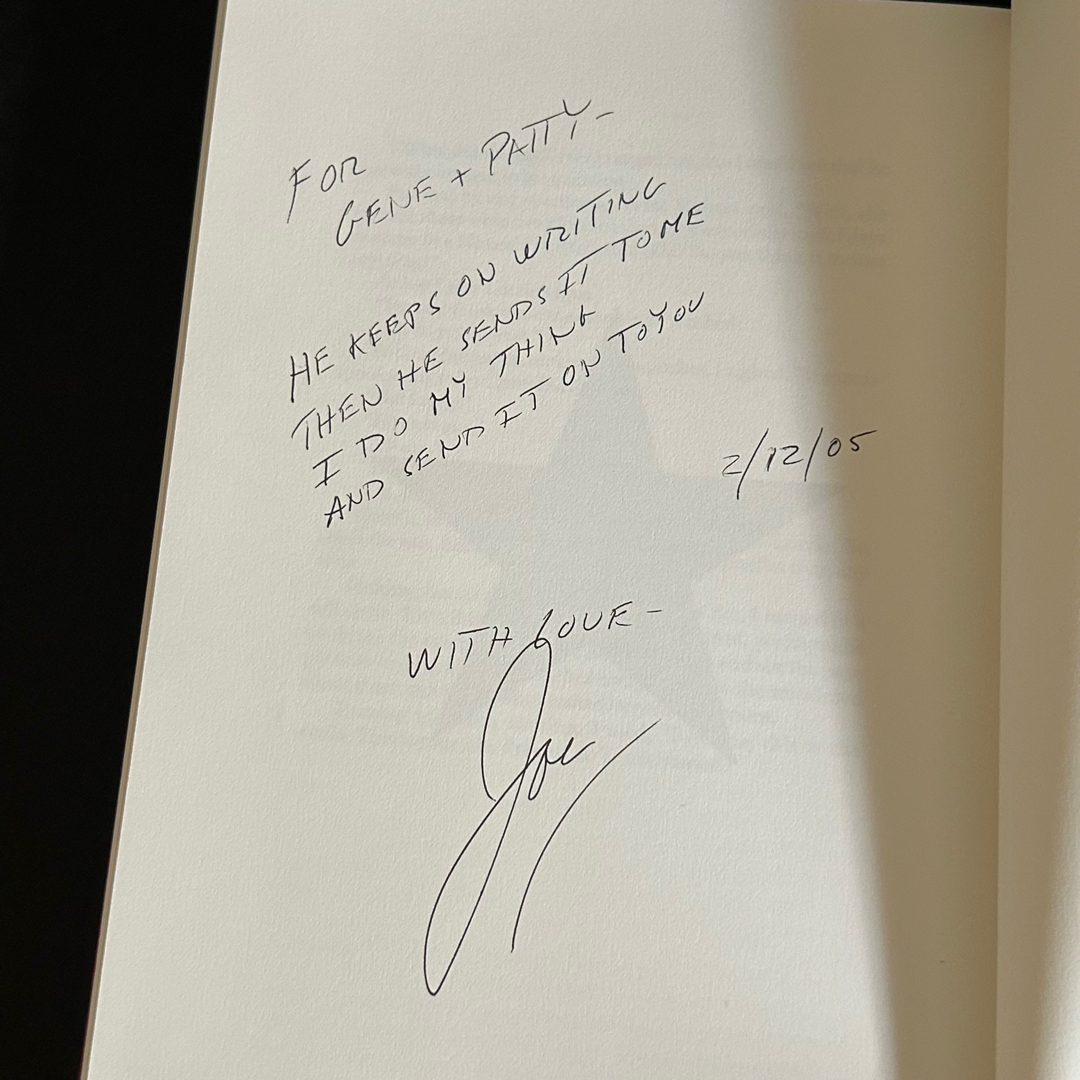 FOR
GENE + PATTY-
HE KEEPS ON WRITING
THEN HE SENDS IT TO ME
I DO MY THING
AND SEND IT ON TO YOU
2/12/05
WITH LOVE-
Joe